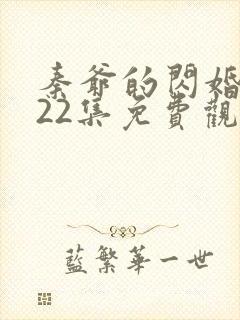 秦爺的閃婚
22集免費觀
藍繁華一世